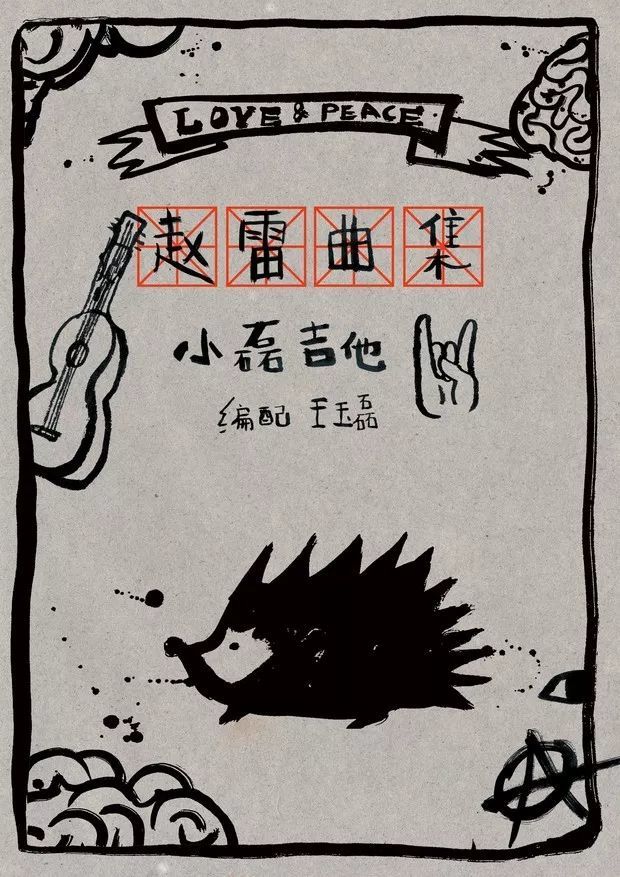 LOVE & PEACE
赵雷曲集
小磊吉他
编配 王玉磊